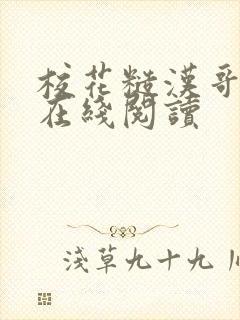 校花糙漢哥
在綫閱讀
淺草九十九